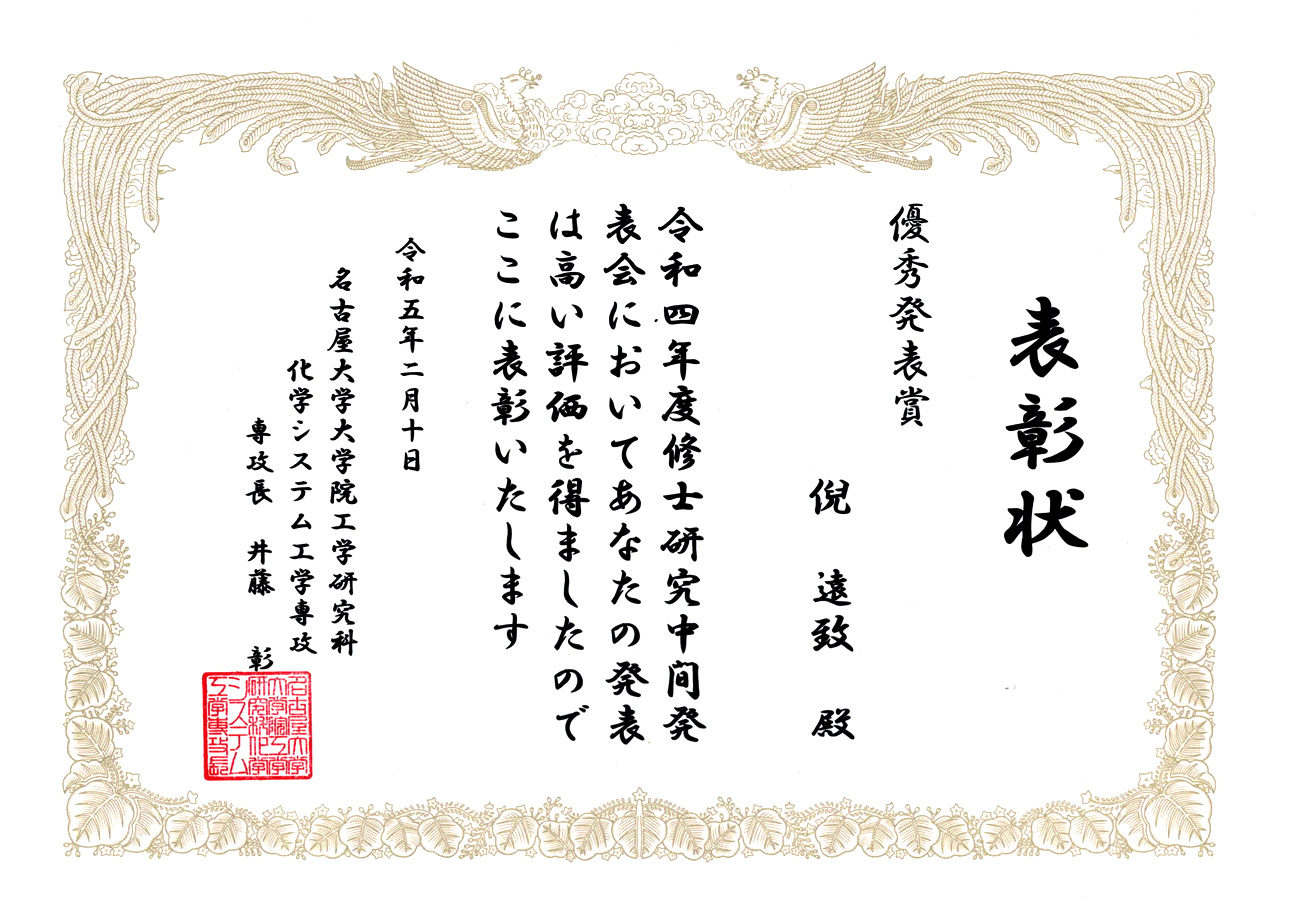 表彰状
優秀発表賞
倪 遠致 殿
令和四年度修士研究中間発
表会においてあなたの発表
は高い評価を得ましたので
ここに表彰いたします
令和五年二月十日
名古屋大学大学院工学研究科
化学システム工学専攻
専攻長 井藤 彰
名古屋大学
大学院工学
研究科化学
システム
工学専攻長